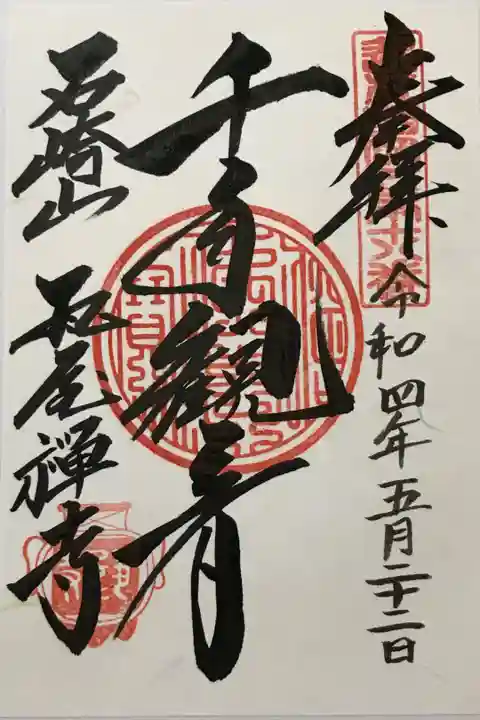 奉拝
令和四年五月二十二日
千手觀音
石崎山 瓦屋禅寺